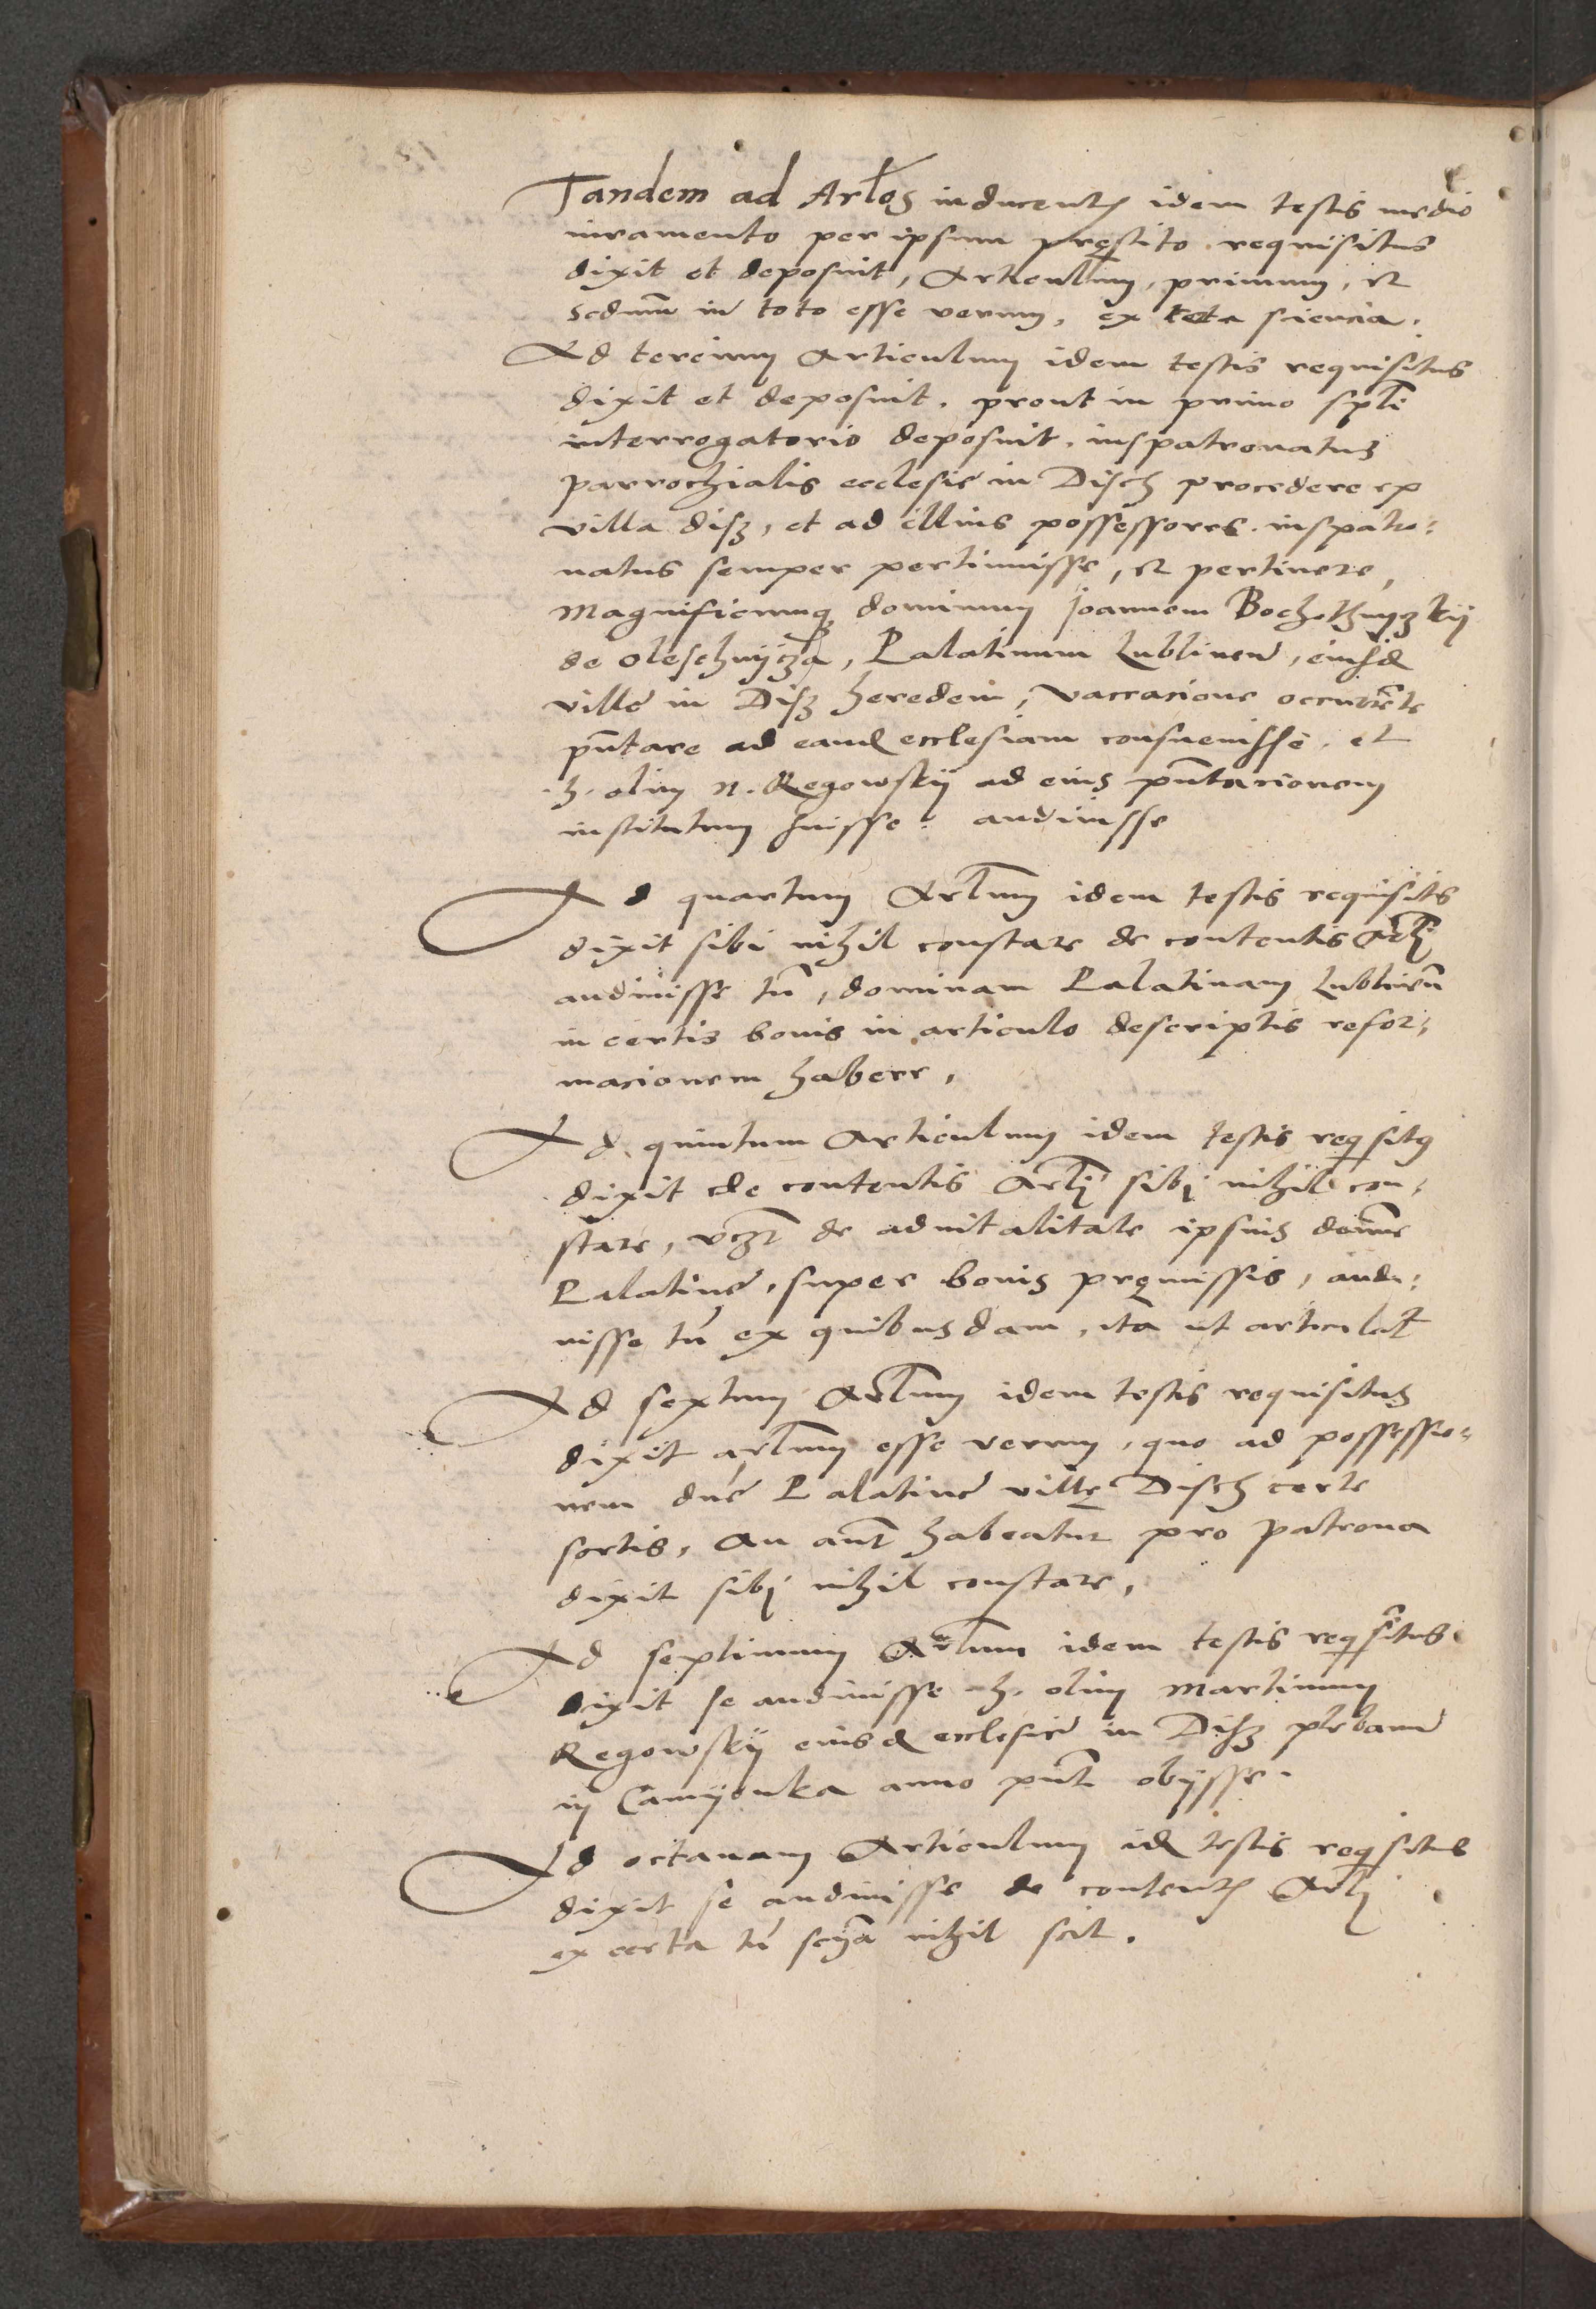 Tandem ad Arlos inducentis idem testis medio
iuramento per ipsum pręstito requisitus
dixit et deposuit, Articulum, primum, et
scdum in toto esse verum, ex certa sciencia.
Ad tercium Articulum idem testis requisitus
dixit et deposuit. prout in primo spli
interrogatorio deposuit. iuspatronatus
parrochialis ecclesie in Disch procedere ex
villa disz, et ad illius possessores iuspatro:
natus semper pertinuisse, et pertinere,
Magnificumq dominum Joannem
de Oleschnycza, Palatinum Lublinen, eiusd
ville in Disz heredem, vaccacione occurrente
pntare ad eand ecclesiam consueuisse. et
h. olim N. Regowsky ad eius pntacionem
institutum fuisse. audiuisse
Ad quartum Arlum idem testis requisits
dixit sibi nihil constare de contentis Arli
audiuisse tn, dominam Palatinam Lublinen
in certis bonis in articulo descriptis refor:
macionem habere,
Ad quintum Articulum idem testis reqsitus
dixit de contentis Arli sibi nihil con:
stare, vczt de aduitalitate ipsius domine
Palatine, super bonis premissis, audi:
uisse tn ex quibusdam, ita ut articulat
Ad sextum Arlum idem testis requisitus
dixit arlum esse verum, quo ad possessio:
nem dne Palatine villę Disch certe
sortis, An aut habeatur pro patrona
dixit sibi nihil constare,
Ad septimum Arlum idem testis reqsitus
dixit se audiuisse h. olim Martinum
Regowsky eiusd ecclesie in Disz plebanu
in Camyonka anno pnt obysse.
Ad octauam Articulum id testis reqsitus
dixit se audiuisse de contentis Arli
ex certa tn scia nihil scit.